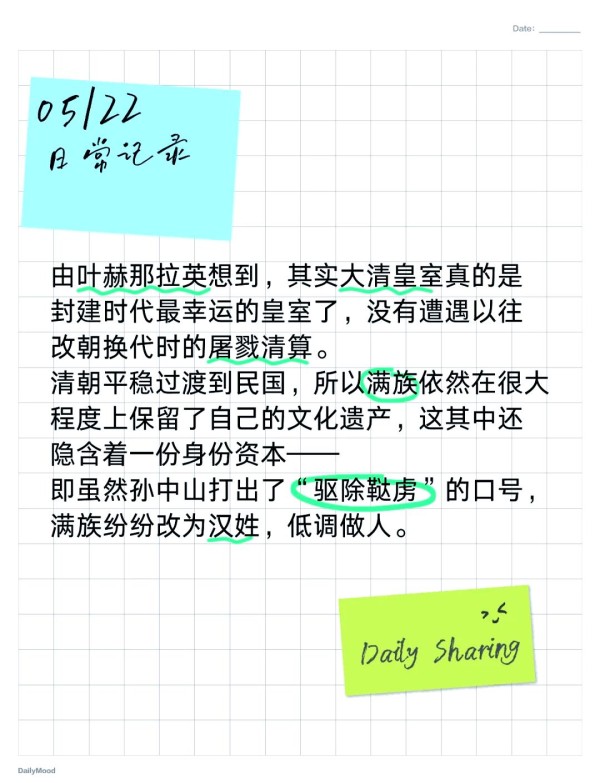 Date:
05/22
日常记录
由叶赫那拉英想到，其实大清皇室真的是
封建时代最幸运的皇室了，没有遭遇以往
改朝换代时的屠戮清算。
清朝平稳过渡到民国，所以满族依然在很大
程度上保留了自己的文化遗产，这其中还
隐含着一份身份资本——
即虽然孙中山打出了“驱除鞑虏”的口号，
满族纷纷改为汉姓，低调做人。
Daily Sharing
DailyMood